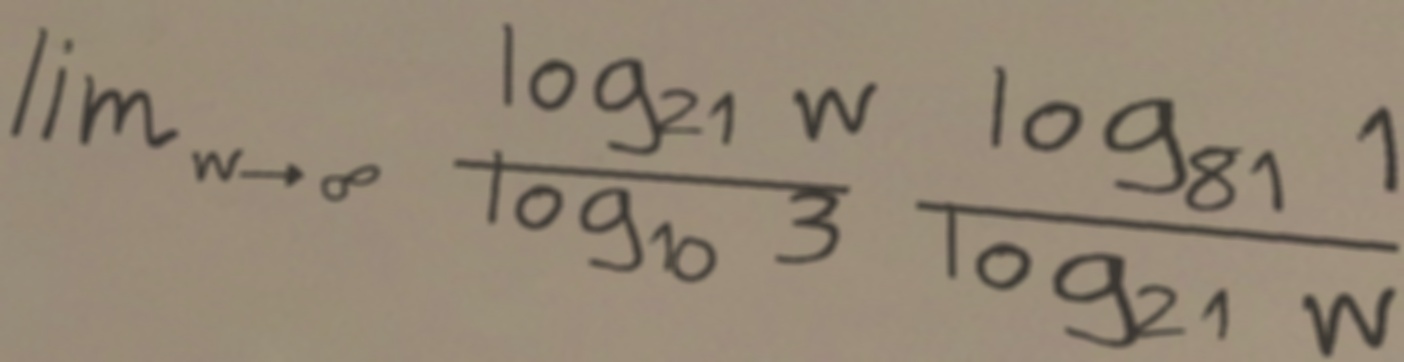 lim_{w→∞} \frac{log_{21} w}{log_{10} 3} \frac{log_{81} 1}{log_{21} w}